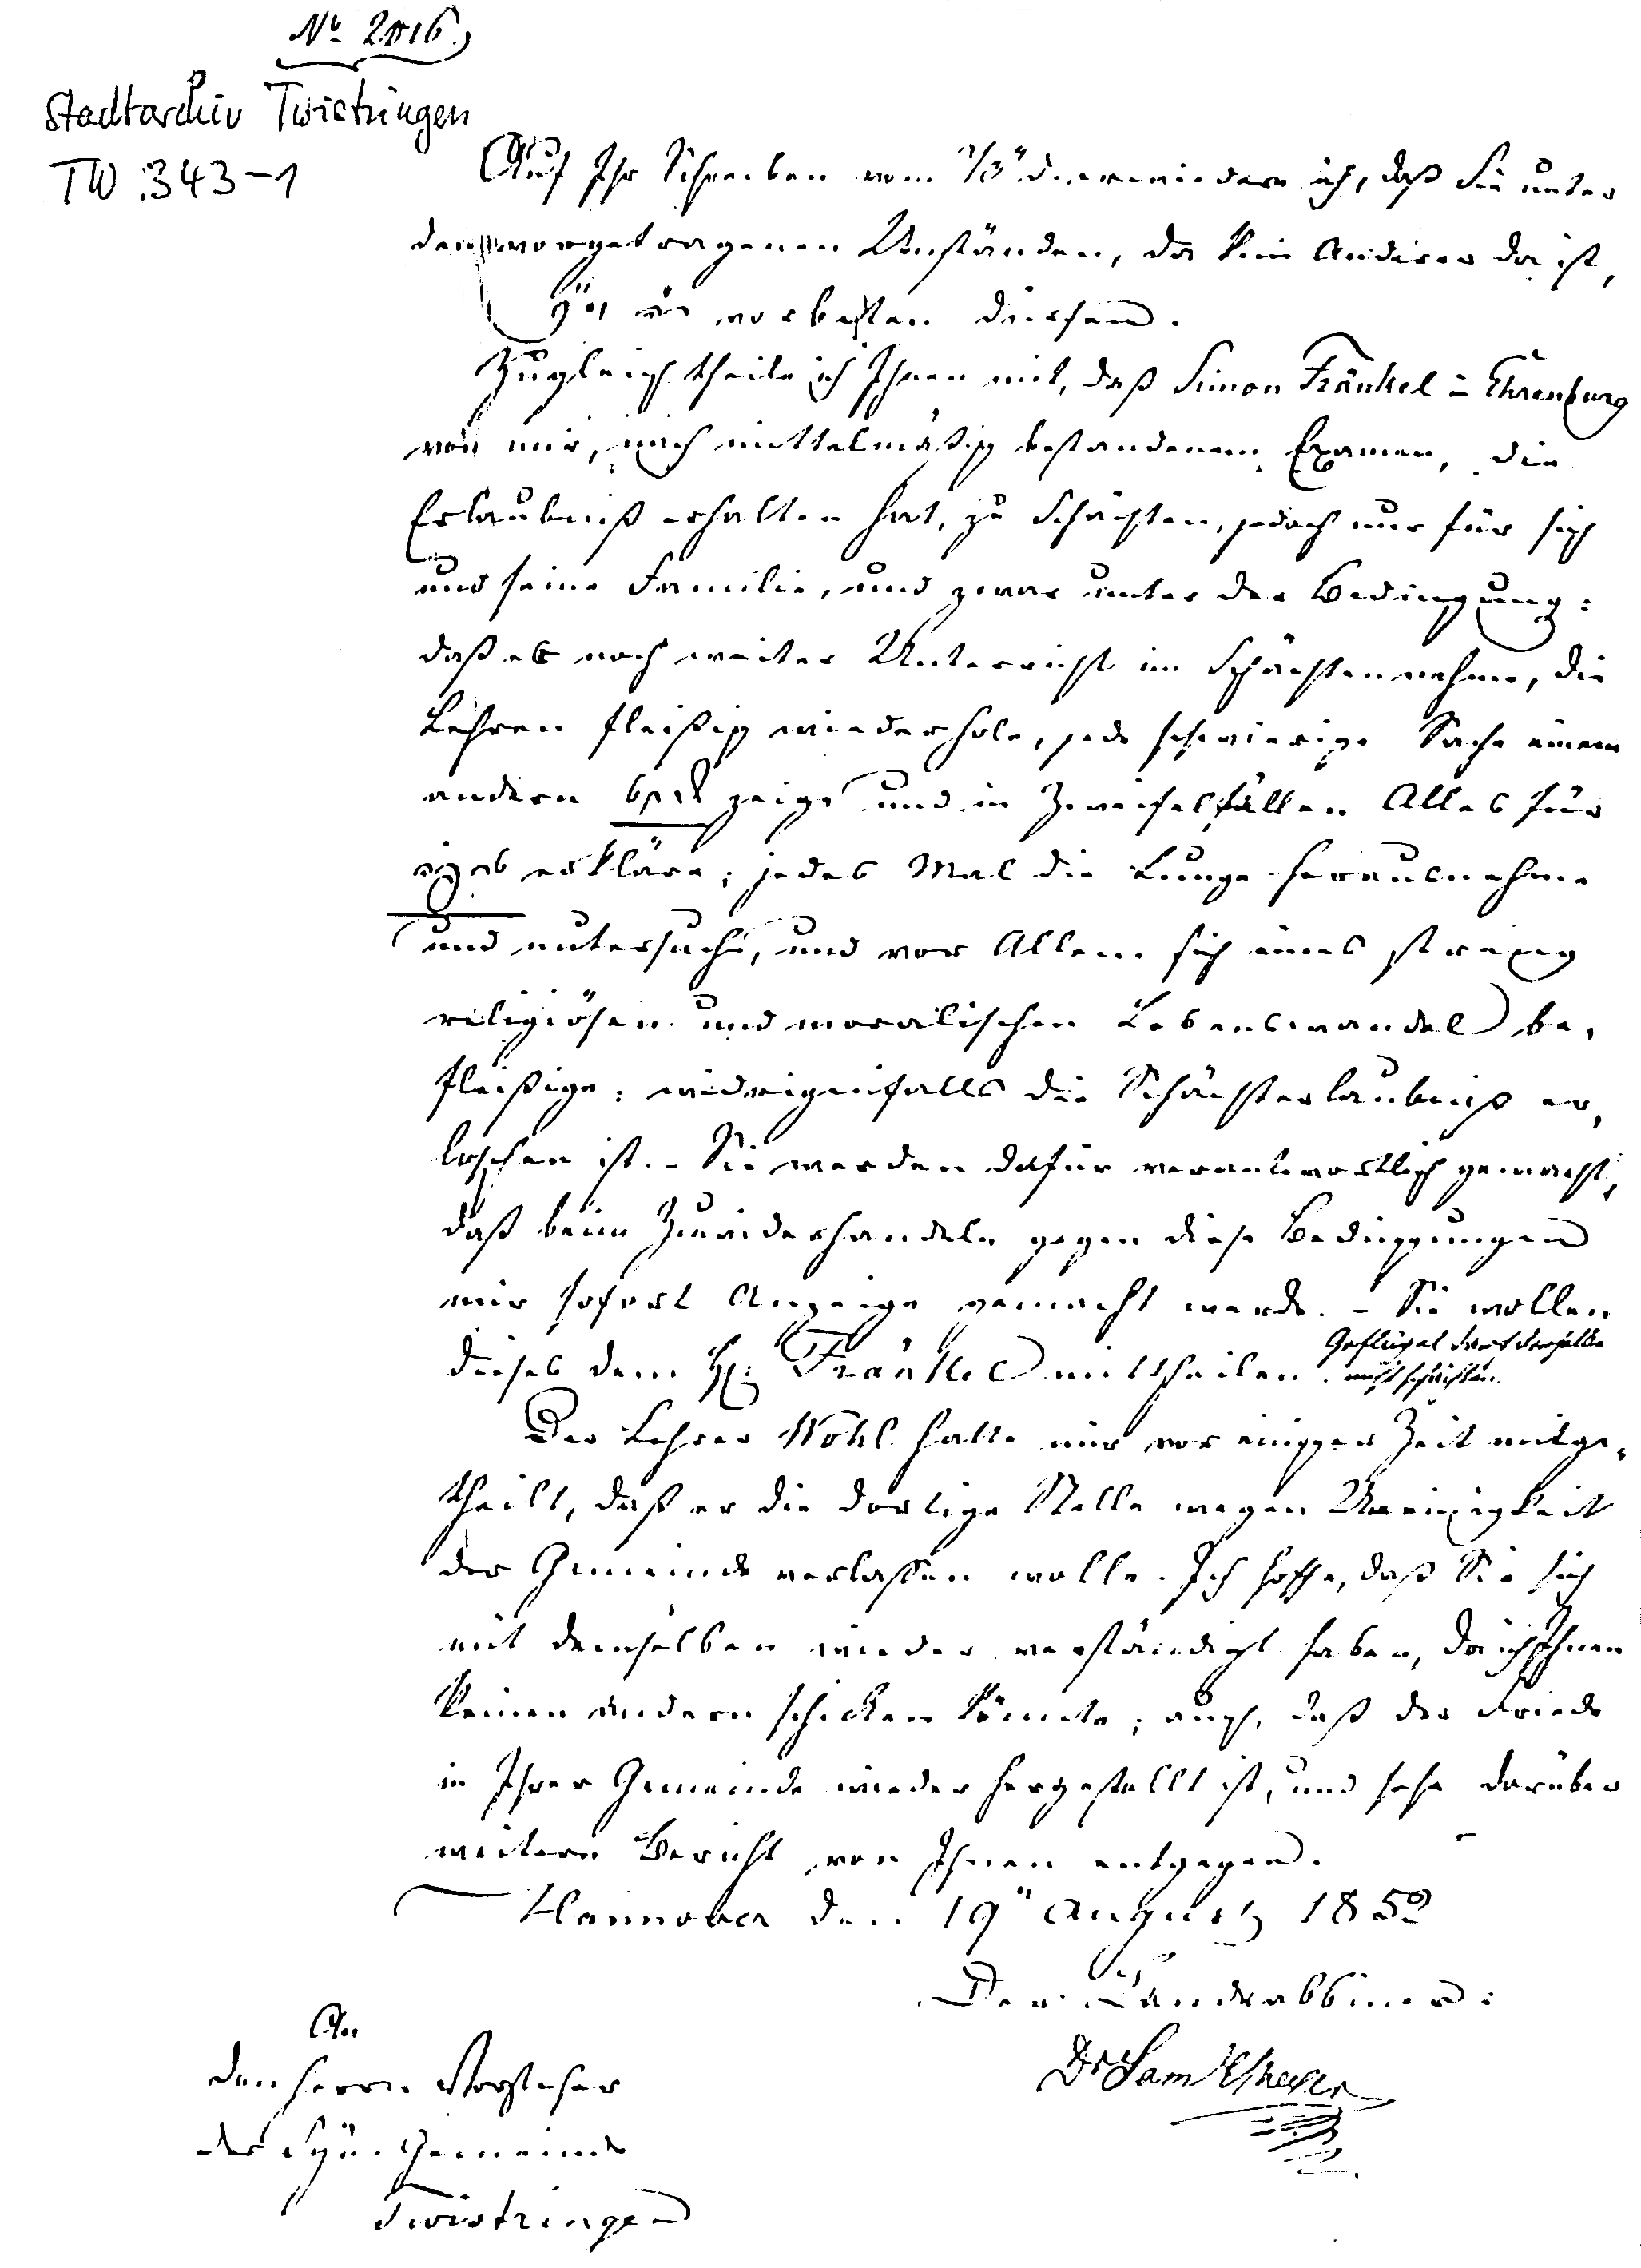 No 2016.
Stadtarchiv Twistringen
TW 343-1
Auf Ihr Schreiben vom d. erwiedere ich, daß Sie unter
den vorgetragenen Umständen, da kein Anderer da ist,
vorbeten dürfen.
Zugleich theile ich Ihnen mit, daß Simon Fränkel in Ehrenburg
von mir, nach mittelmäßig bestandenem Examen, die
Erlaubniß erhalten hat, zu schächten, jedoch nur für sich
und seine Familie, und zwar unter der Bedingung:
daß er noch weiter Unterricht im Schächten nehme, die
Lehren fleißig wiederhole, jede schwierige Sache einem
andern zeige und in Zweifelfällen Alles für
erkläre; jedes Mal die Lunge herausnehme
und untersuche, und vor Allem sich eines streng
religiösen und moralischen Lebenswandel be-
fleißige; widrigenfalls die Schächterlaubniß er-
loschen ist. - Sie werden dafür verantwortlich gemacht,
daß beim Zuwiderhandeln gegen diese Bedingungen
mir sofort Anzeige gemacht werde. - Sie wollen
dieses dem H: Fränkel mittheilen. Geflügel darf derselbe
nicht schächten.
Der Lehrer Wohl hatte mir vor einiger Zeit mitge-
theilt, daß er die dortige Stelle wegen Uneinigkeit
der Gemeinde verlassen wolle. Ich hoffe, daß Sie sich
mit demselben wieder verständigt haben, da ich Ihnen
keinen andern schicken könnte; auch, daß der Friede
in Ihrer Gemeinde wieder hergestellt ist, und sehe darüber
weitern Bericht von Ihnen entgegen.
Hannover den 19" August 1852
Der Landrabbiner:
Dr Sam Meyer
An
den Herrn Vorsteher
der Syn. Gemeinde
Twistringen